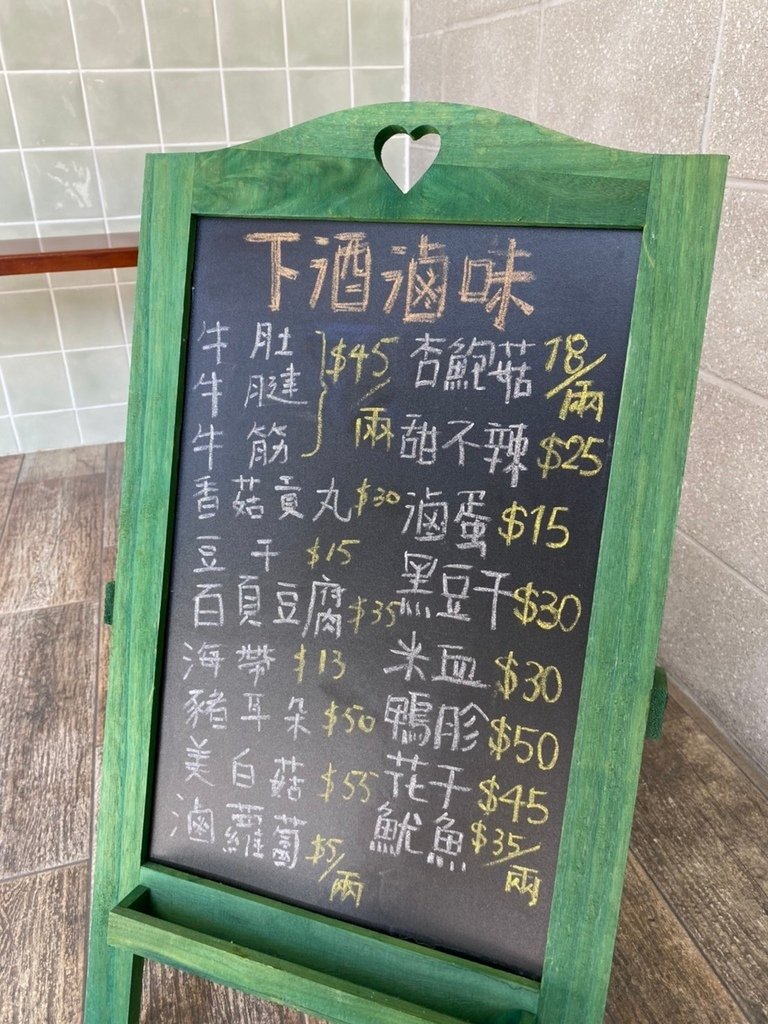 下酒滷味
牛肚
牛腱
牛筋
$45/兩
香菇貢丸$30
豆干 $15
百頁豆腐$35
海帶 $13
豬耳朵 $50
美白菇 $55
滷蘿蔔$5/兩
杏鮑菇18/兩
甜不辣$25
滷蛋$15
黑豆干$30
米血$30
鴨肫$50
花干$45
魷魚$35/兩